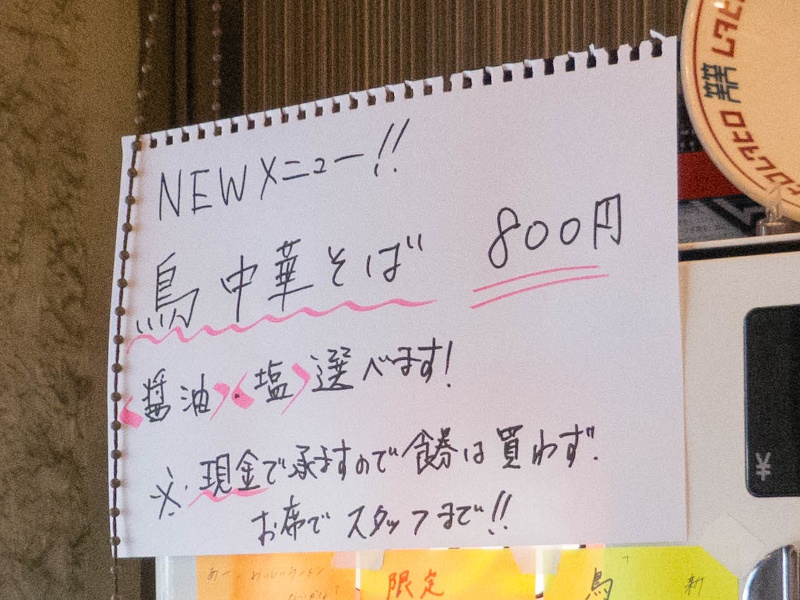 NEWメニュー!!
鳥中華そば 800円
<醤油><塩>選べます!
※.現金で承ますので食券は買わず.
お席で スタッフまで!!
¥
限定
鳥 新